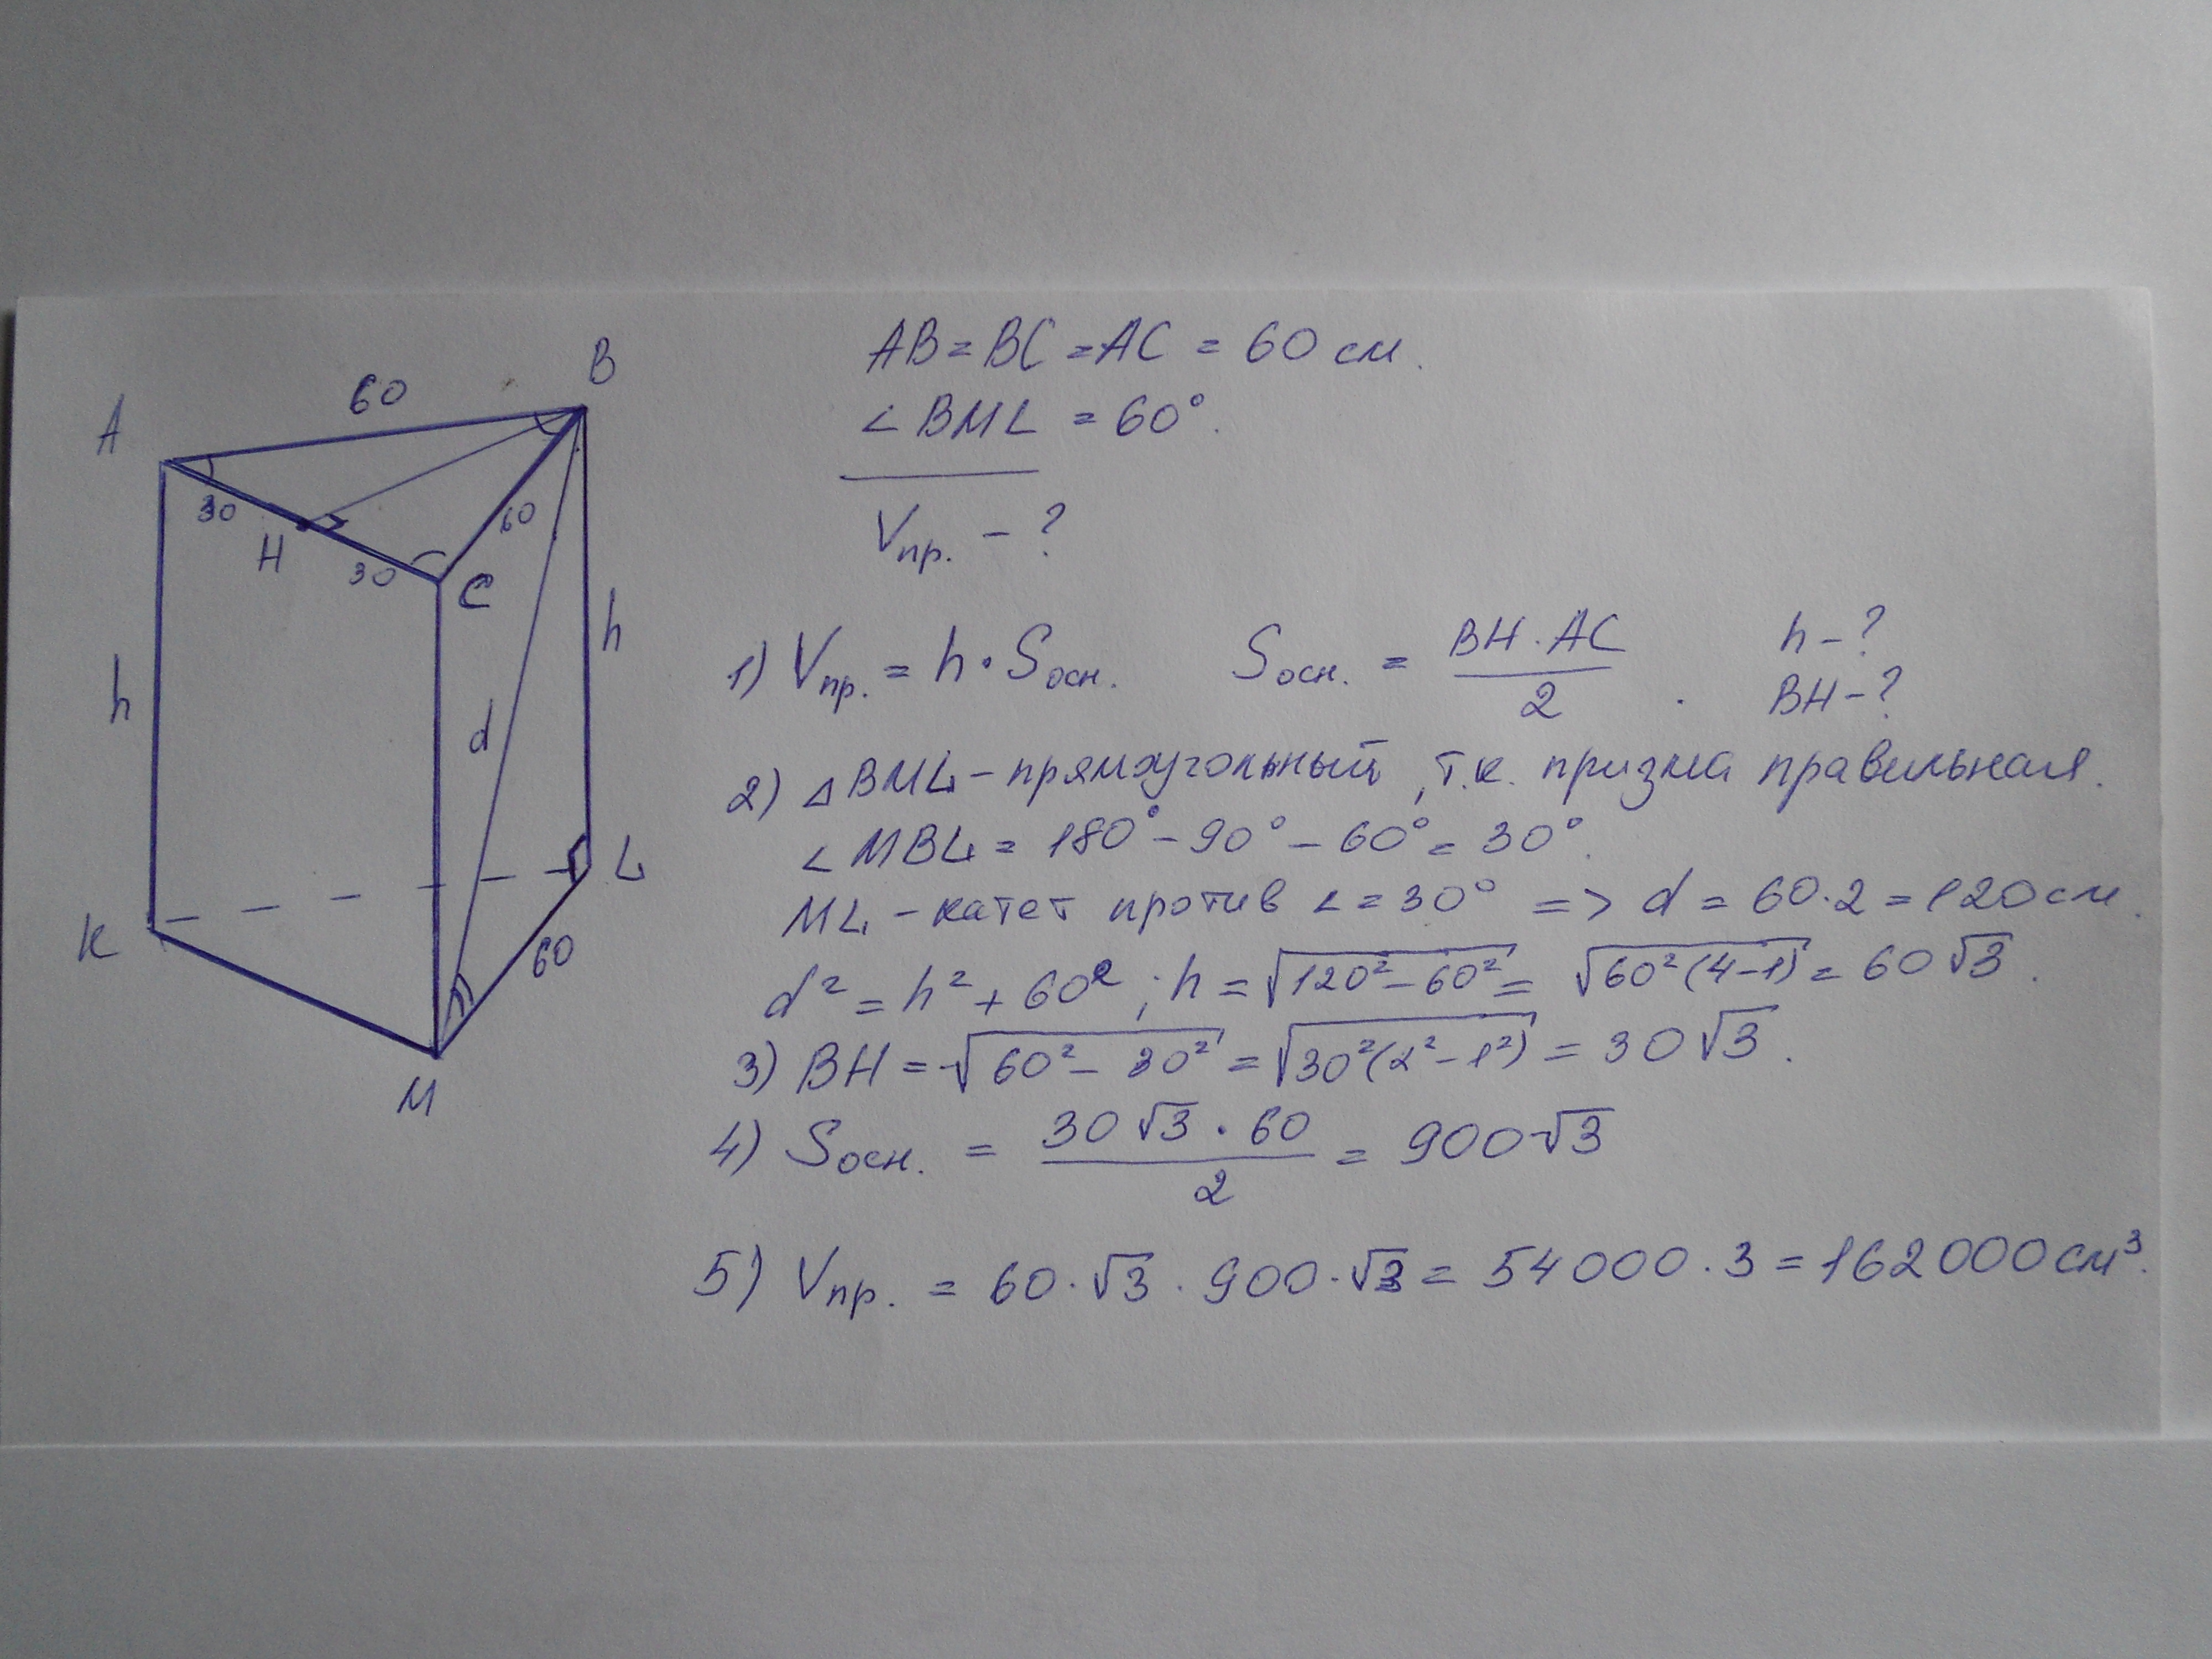 A
60
B
30
H
30
60
C
h
d
h
K
L
60
M
AB = BC = AC = 60 см.
∠ BML = 60°.
Vпр. – ?
1) Vпр. = h · Sосн. Sосн. = BH · AC / 2 . h – ?
BH – ?
2) △ BML – прямоугольный, т.к. призма правильная.
∠ MBL = 180° – 90° – 60° = 30°.
ML – катет против ∠ = 30° => d = 60 · 2 = 120 см.
d² = h² + 60² ; h = √(120² – 60²) = √(60² (4–1)) = 60√3 .
3) BH = √(60² – 30²) = √(30² (2² – 1²)) = 30√3 .
4) Sосн. = 30√3 · 60 / 2 = 900√3
5) Vпр. = 60 · √3 · 900 · √3 = 54000 · 3 = 162000 см³.